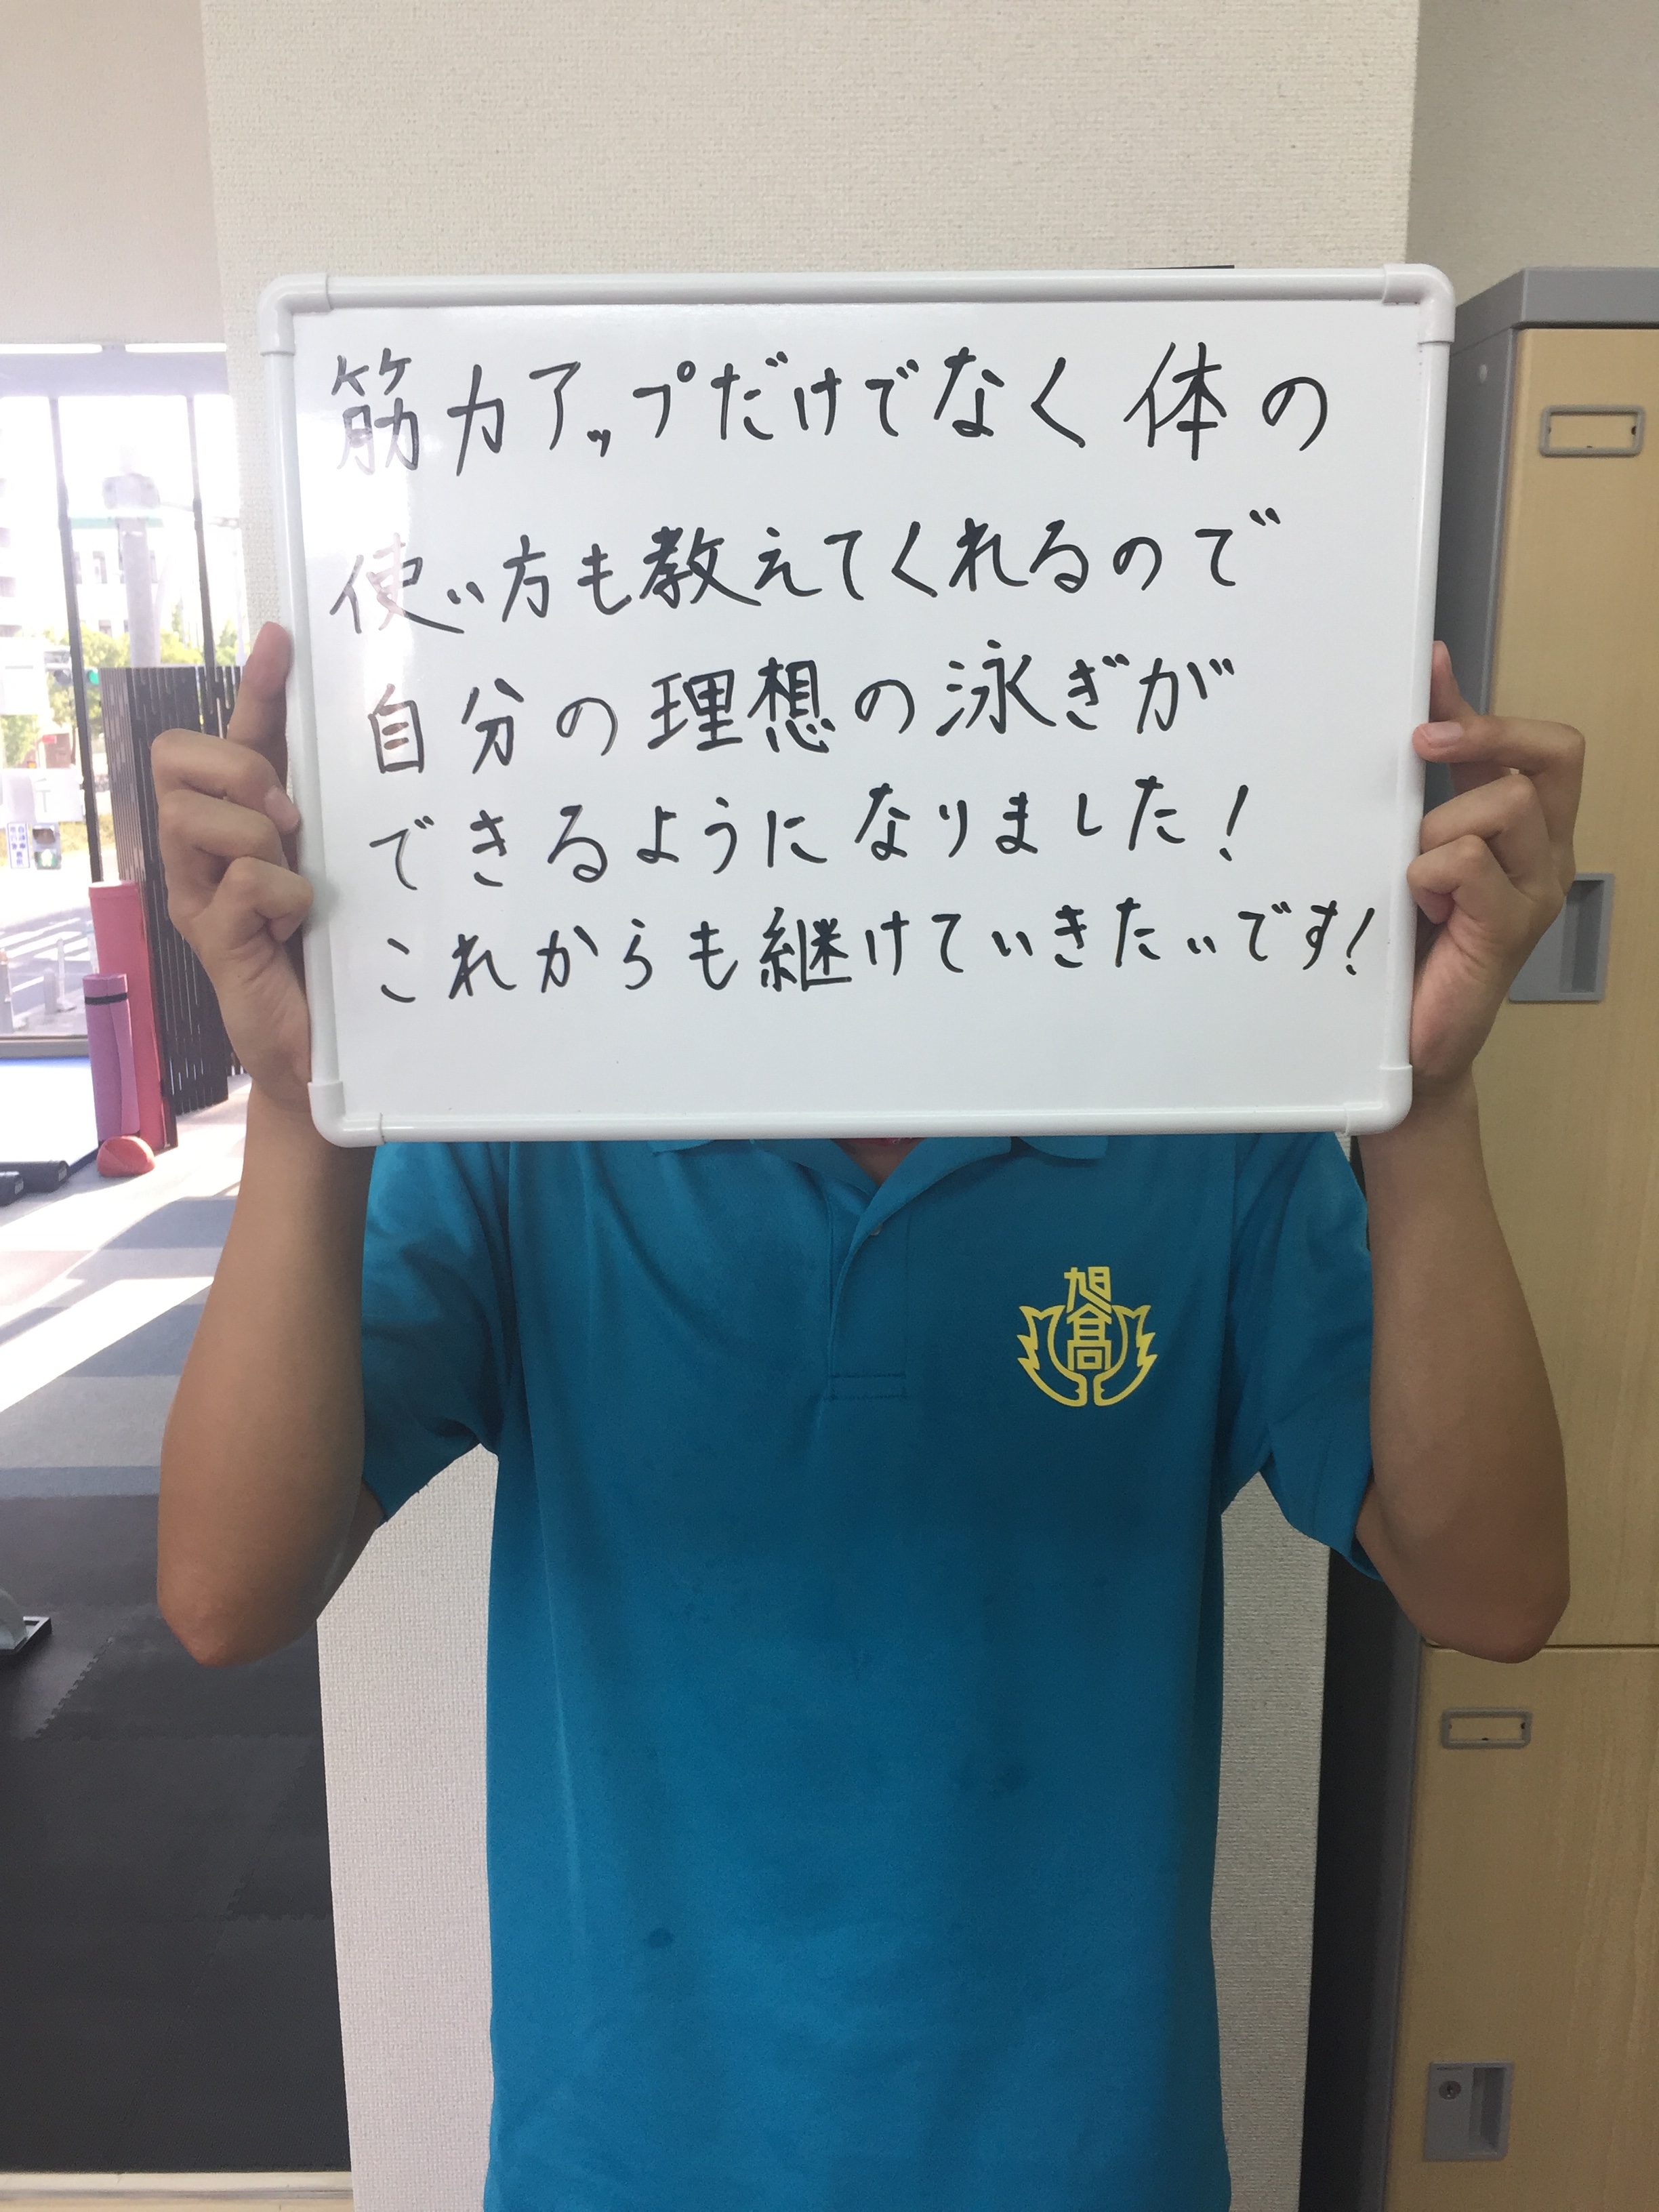 筋力アップだけでなく体の
使い方も教えてくれるので
自分の理想の泳ぎが
できるようになりました!
これからも継けていきたいです!
旭
高